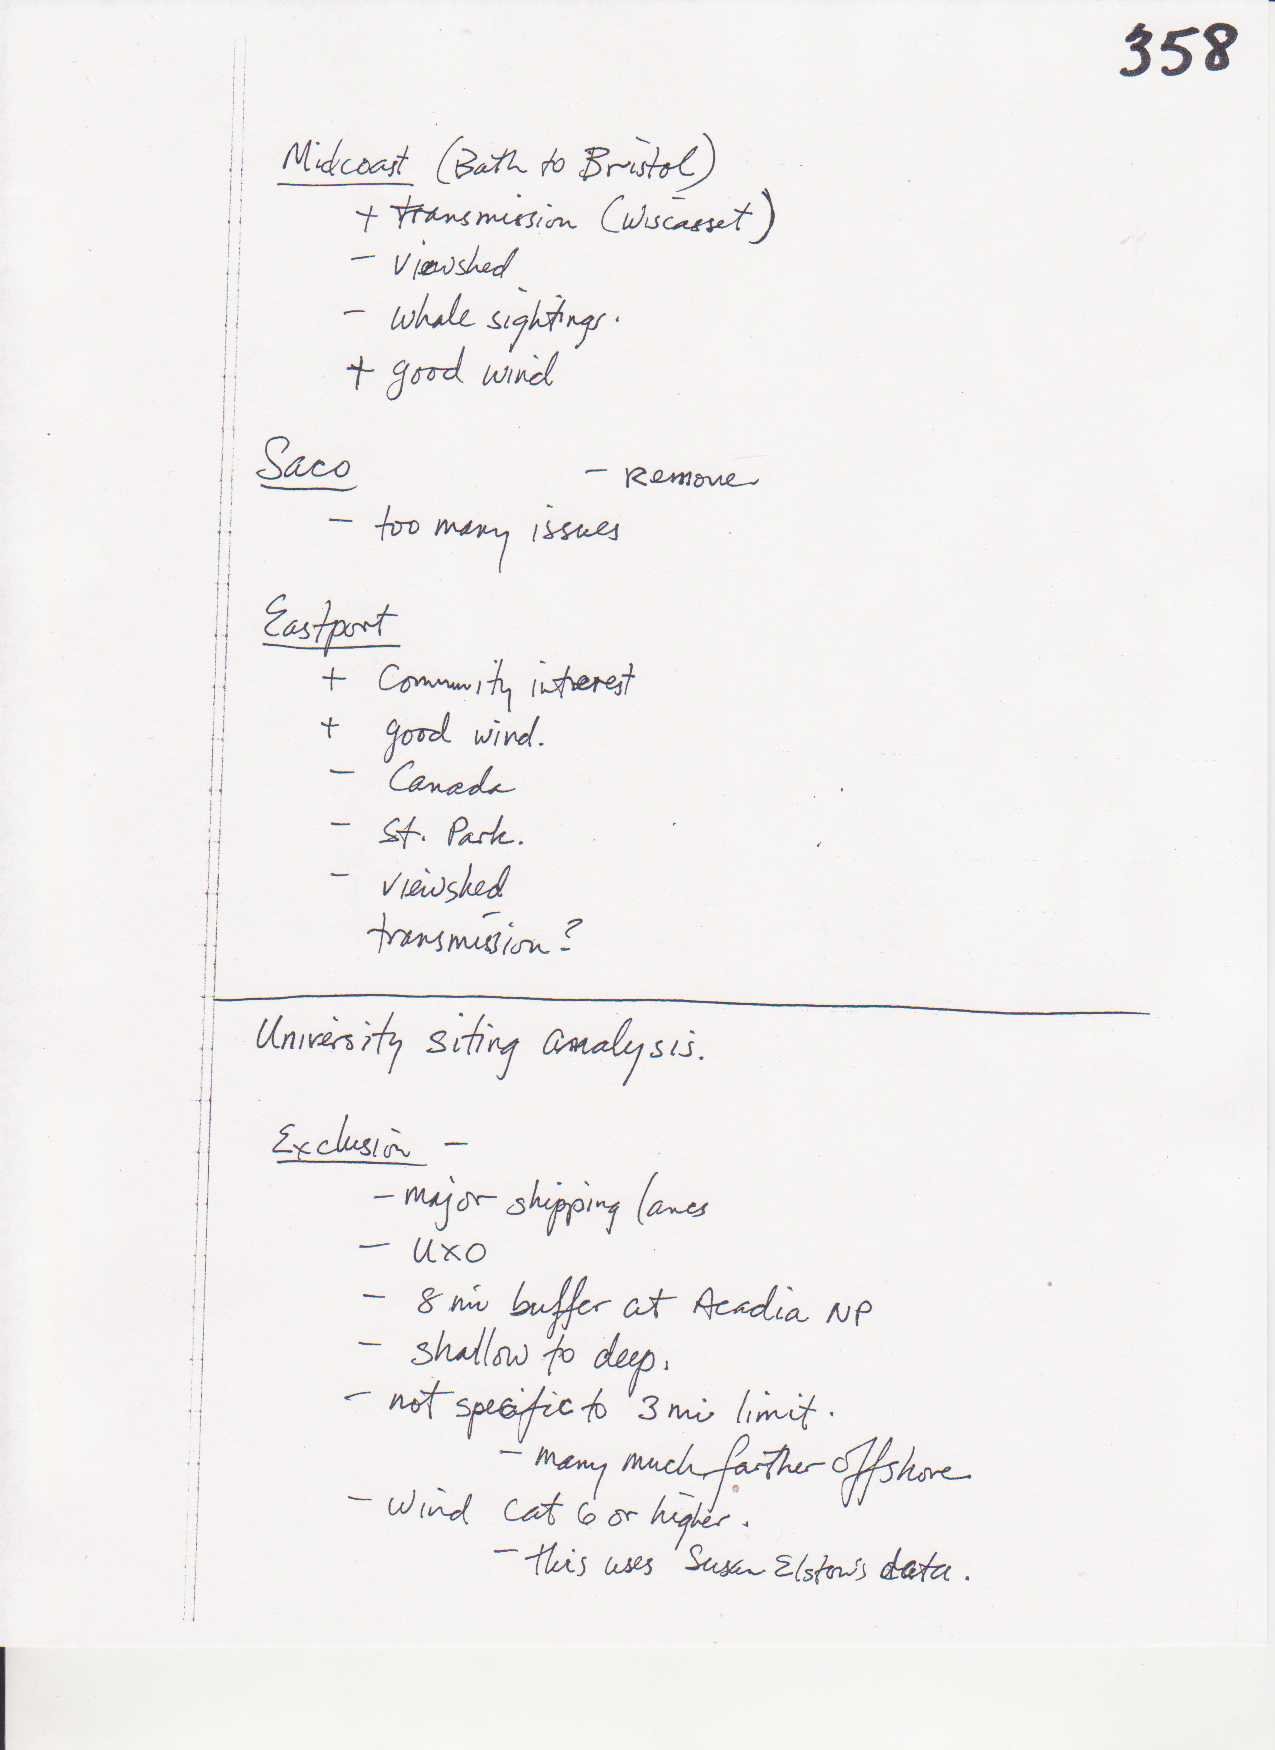 358
Midcoast (Bath to Bristol)
+ transmission (Wiscasset)
- viewshed
- whale sightings.
+ good wind
Saco - Remove
- too many issues
Eastport
+ Community interest
+ good wind.
- Canada
- St. Park.
- viewshed
transmission?
University siting analysis.
Exclusion -
- major shipping lanes
- UXO
- 8 mi buffer at Acadia NP
- shallow to deep.
- not specific to 3 mi limit.
- many much farther offshore
- wind cat 6 or higher.
- this uses Susan Elston's data.